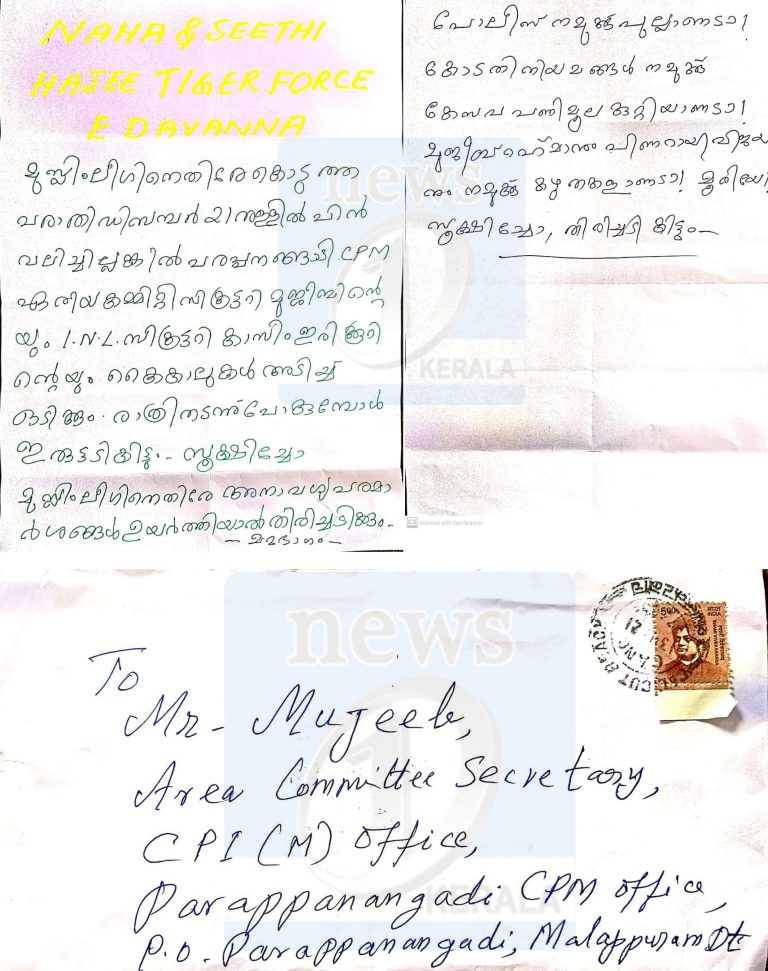 NAHA & SEETHI
HAJEE TIGER FORCE
EDAVANNA
മുസ്ലിംലീഗിനെതിരേകൊടുത്ത
പരാതിഡിസമ്പർ 21നുള്ളിൽ പിൻ
വലിച്ചില്ലങ്കിൽ പരപ്പനങ്ങാടി CPM
ഏരിയകമ്മിറ്റിസിക്രട്ടറി മുജീബിന്റെ
യും I.N.L.സിക്രട്ടറി കാസിംഇരിക്കൂറി
ന്റെയും കൈകാലുകൾ അടിച്ച്
ഓടിക്കും. രാത്രിനടന്ന്പോകുമ്പോൾ
ഇരുട്ടടികിട്ടും- സൂക്ഷിച്ചോ
മുസ്ലിംലീഗിനെതിരേ അനാവശ്യപരാമ
ർശങ്ങൾഉയർത്തിയാൽതിരിച്ചടിക്കും-
- മറുഭാഗം -
പോലീസ് നമുക്ക്പുല്ലാണടാ!
കോടതിനിയമങ്ങൾ നമുക്ക്
കേസവ പണിമൂല കുറ്റിയാണടാ!
മുജീബ്റഹ്മാനും പിണറായിവിജയ
നും നമുക്ക് കഴുതകളാണടാ!
സൂക്ഷിച്ചോ, തിരിച്ചടി കിട്ടും-
CS Scanned with CamScanner
news
1
KERALA
To
Mr- Mujeeb,
Area Committee Secretary,
CPI (M) Office,
Parappanangadi CPM office,
P.O. Parappanangadi, Malappuram Dt
news
1
KERALA
भारत
INDIA
500
21
CALICUT BEACH